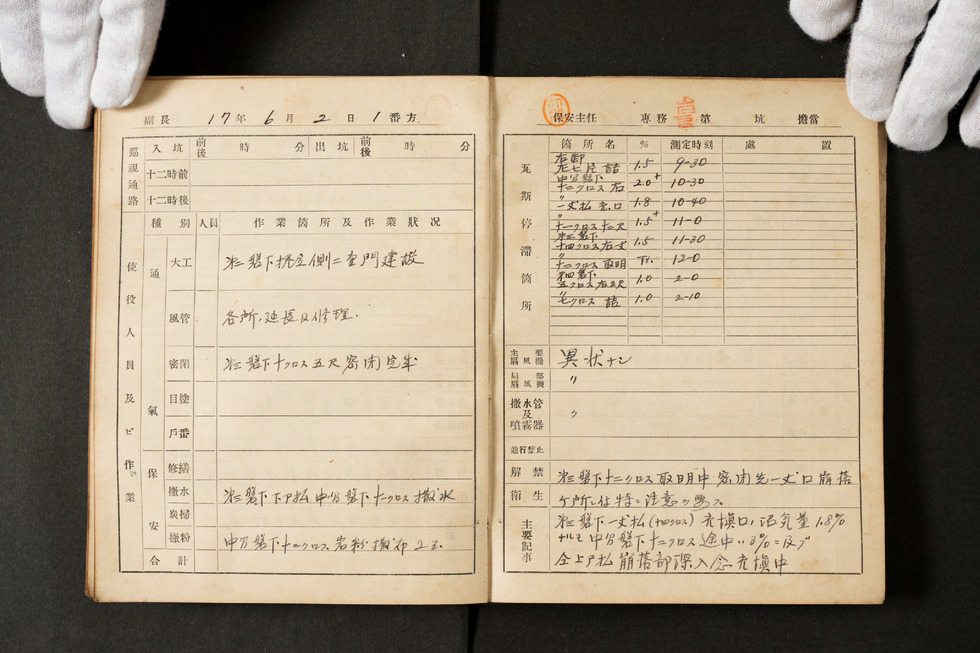 副長 17年 6月 2日 1番方
巡視通路 入坑 前後 時 分 出坑 前後 時 分
十二時前
十二時後
使役人員及ビ作業
種別 人員 作業箇所及作業狀況
通氣
大工 第二盤下 側ニ 門建設
風管 各所延長及修理.
密閉 第二盤下十クロス五尺密閉完成
目塗
戸番
保安
修繕
撒水 第二盤下下ア払中切盤下十一クロス撒水
炭掃
撒粉 中切盤下十二クロス岩粉撒布
合計
保安主任 專務 第 坑 擔當
瓦斯停滯箇所
箇所名 % 測定時刻 處置
右卸
左七片詰 1.5 9-30
中切盤下
十二クロス右 2.0+ 10-30
〃
一丈払 口 1.8 10-40
〃
十一クロス十二尺 1.5+ 11-0
第二盤下
十四クロス右一丈 1.5 11-30
〃
十二クロス取明 Tr. 12-0
第四盤下
五クロス右五尺 1.0 2-0
〃七クロス詰 1.0 2-10
主要扇風機 異状ナシ
局部扇風機 〃
撒水管及噴霧器 〃
通行禁止
解禁 第二盤下十二クロス取明中密閉先一丈口崩落
衛生 ケ所ニ付特ニ注意ヲ要ス
主要記事
第二盤下一丈払(十四クロス)充塡口 量1.8%
ナルモ中切盤下十二クロス途中ハ3%ニ及ブ
仝上ア払崩落部深入 充塡中